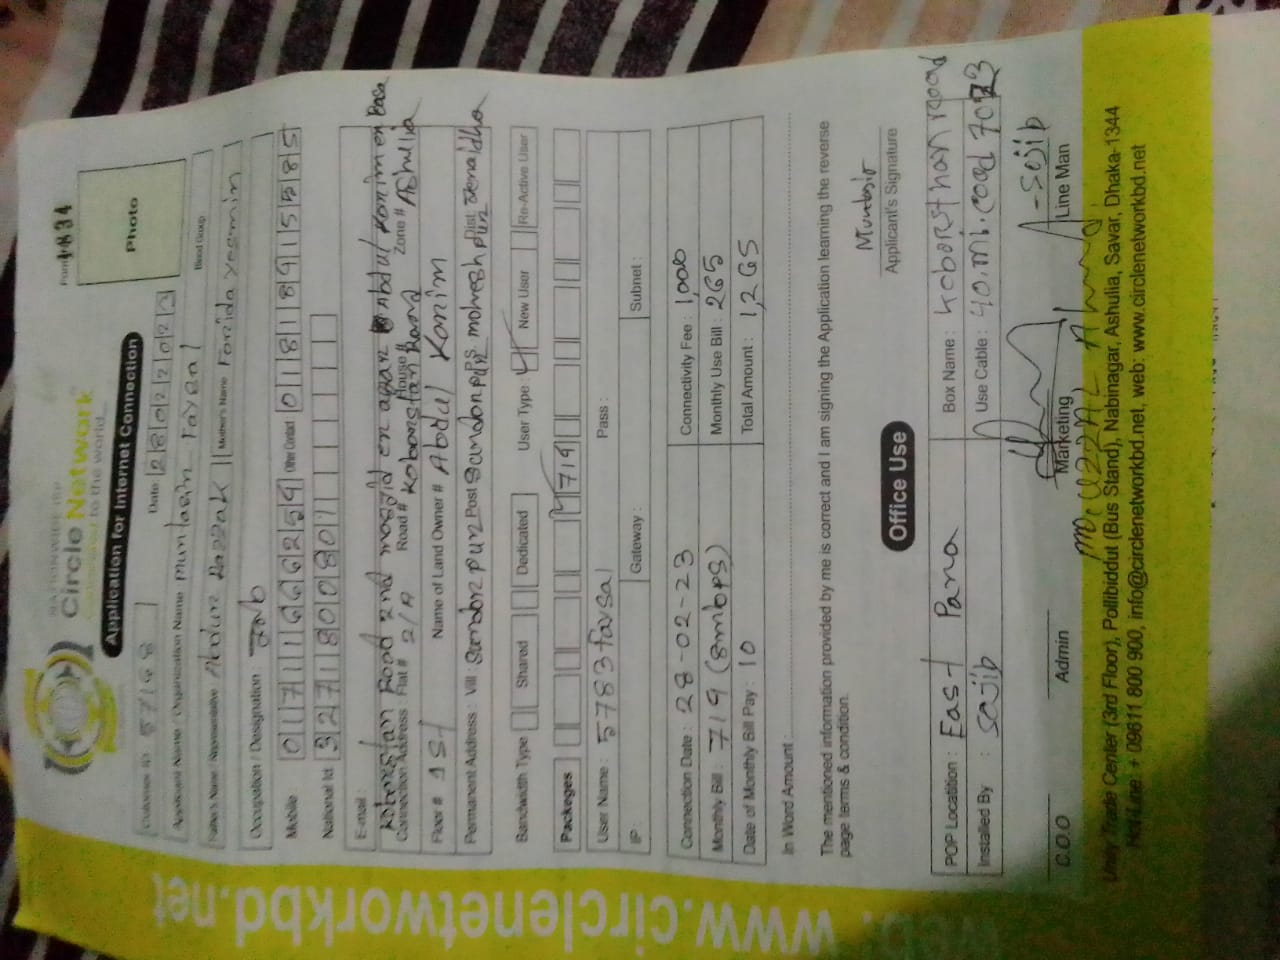 NATIONWIDE ISP
Circle Network
to the world...
Application for Internet Connection
1834
Photo
Customer ID 57148 Date 28022023
Applicant Name / Organization Name Muntasin Faysal
Father's Name / Representative Abdur Razzak Mother's Name Farida Yeasmin Blood Group
Occupation / Designation : Job
Mobile : 01711662659 Other Contact : 01818915585
National Id 3271800801
E-mail :
Connection Address Flat# 2/A Road# Koborsthan Road House# Zone# Ashulia
Floor# 1st Name of Land Owner# Abdul Karim
Permanent Address : Vill : Post P.S Dist
Bandwidth Type Shared Dedicated User Type : New User Re-Active User
Packeges 719
User Name : 5783faysal Pass :
IP : Gateway : Subnet :
Connection Date : 28-02-23 Connectivity Fee : 1,000
Monthly Bill : 719 (8mbps) Monthly Use Bill : 265
Date of Monthly Bill Pay : 10 Total Amount : 1,265
In Word Amount :
The mentioned information provided by me is correct and I am signing the Application learning the reverse
page terms & condition.
Applicant's Signature
Office Use
POP Location : East Para Box Name : koborsthan roood
Installed By : Sajib Use Cable : 40.mi.
Sojib
C.O.O Admin Marketing Line Man
Unity Trade Center (3rd Floor), Pollibiddut (Bus Stand), Nabinagar, Ashulia, Savar, Dhaka-1344
HotLine : + 09611 800 900, info@circlenetworkbd.net, web: www.circlenetworkbd.net
web: www.circlenetworkbd.net